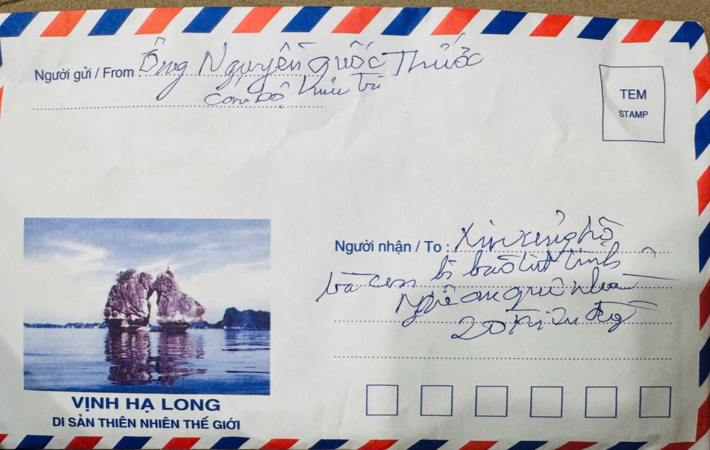 Người gửi / From : Ông Nguyễn Quốc Thước
cán bộ hưu trí
TEM
STAMP
Người nhận / To : Xin ủng hộ
bà con bị bão lụt tỉnh
Nghệ an quê nhà
20 triệu đồng
VỊNH HẠ LONG
DI SẢN THIÊN NHIÊN THẾ GIỚI